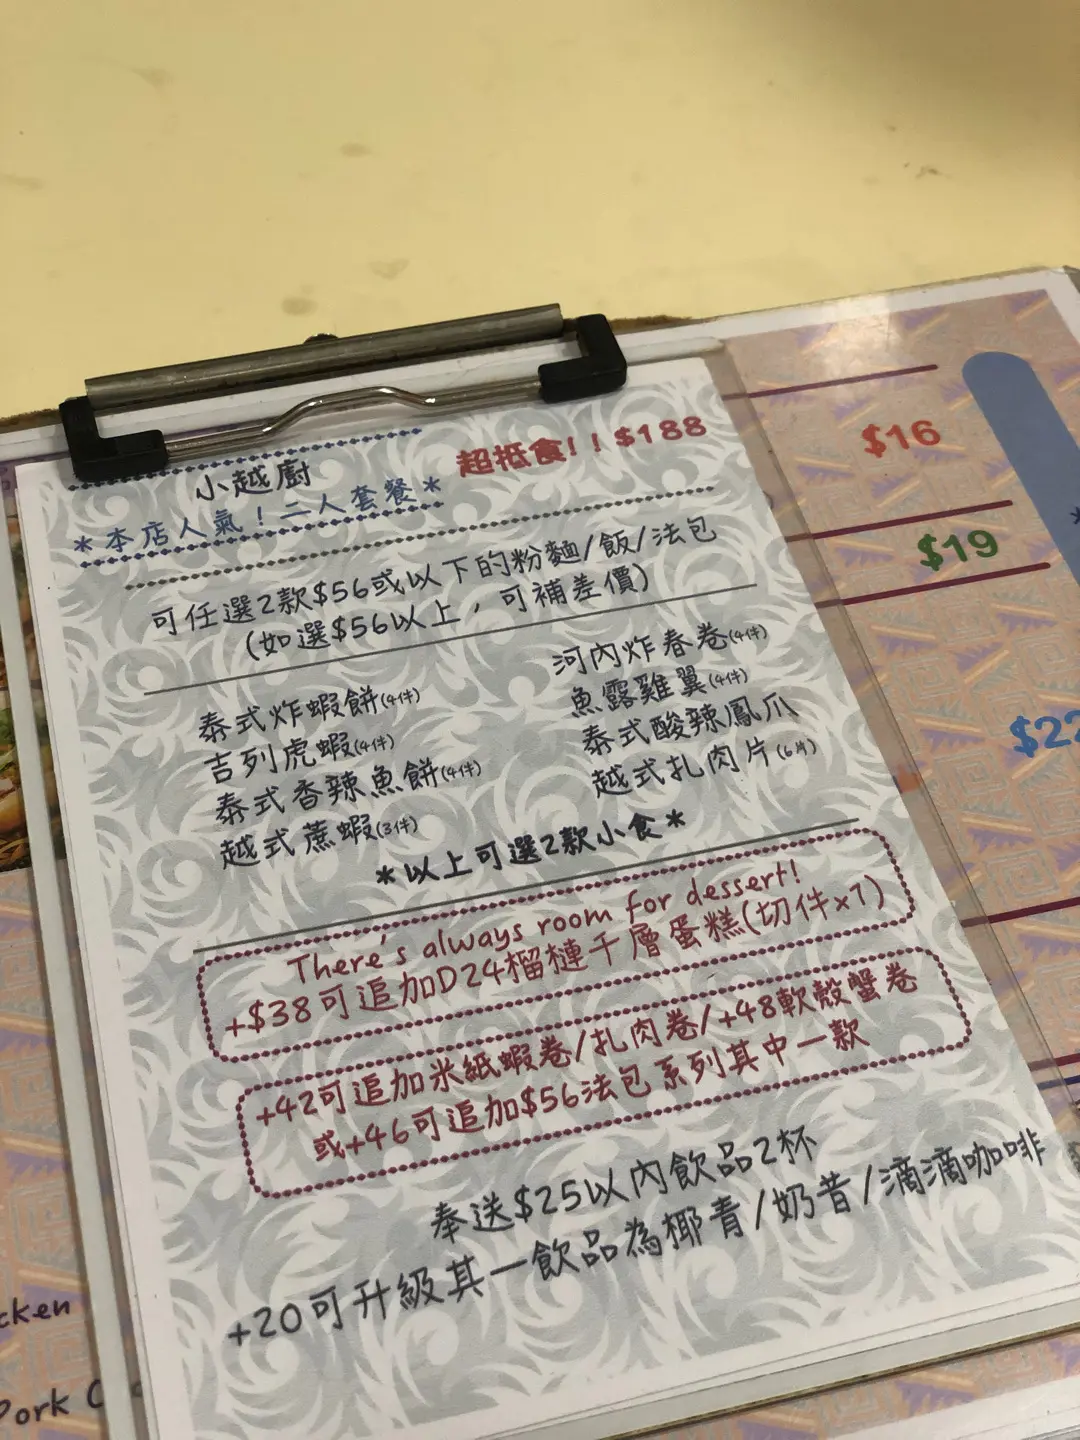 小越廚
超抵食!!$188
*本店人氣！二人套餐*
可任選2款$56或以下的粉麵/飯/法包
(如選$56以上，可補差價)
泰式炸蝦餅(4件)
吉列虎蝦(4件)
泰式香辣魚餅(4件)
越式蔗蝦(3件)
河內炸春卷(4件)
魚露雞翼(4件)
泰式酸辣鳳爪
越式扎肉片(6片)
*以上可選2款小食*
There's always room for dessert!
+$38可追加D24榴槤千層蛋糕(切件x1)
+42可追加米紙蝦卷/扎肉卷/+48軟殼蟹卷
或+46可追加$56法包系列其中一款
奉送$25以內飲品2杯
+20可升級其一飲品為椰青/奶昔/滴滴咖啡
$16
$19
$22
cken
Pork